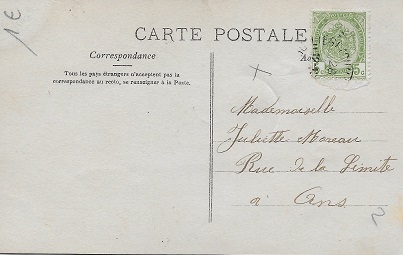 1€
CARTE POSTALE
Correspondance
Tous les pays étrangers n'acceptent pas la
correspondance au recto, se renseigner à la Poste.
Mademoiselle
Juliette Moreau
Rue de la Limite
à Ans